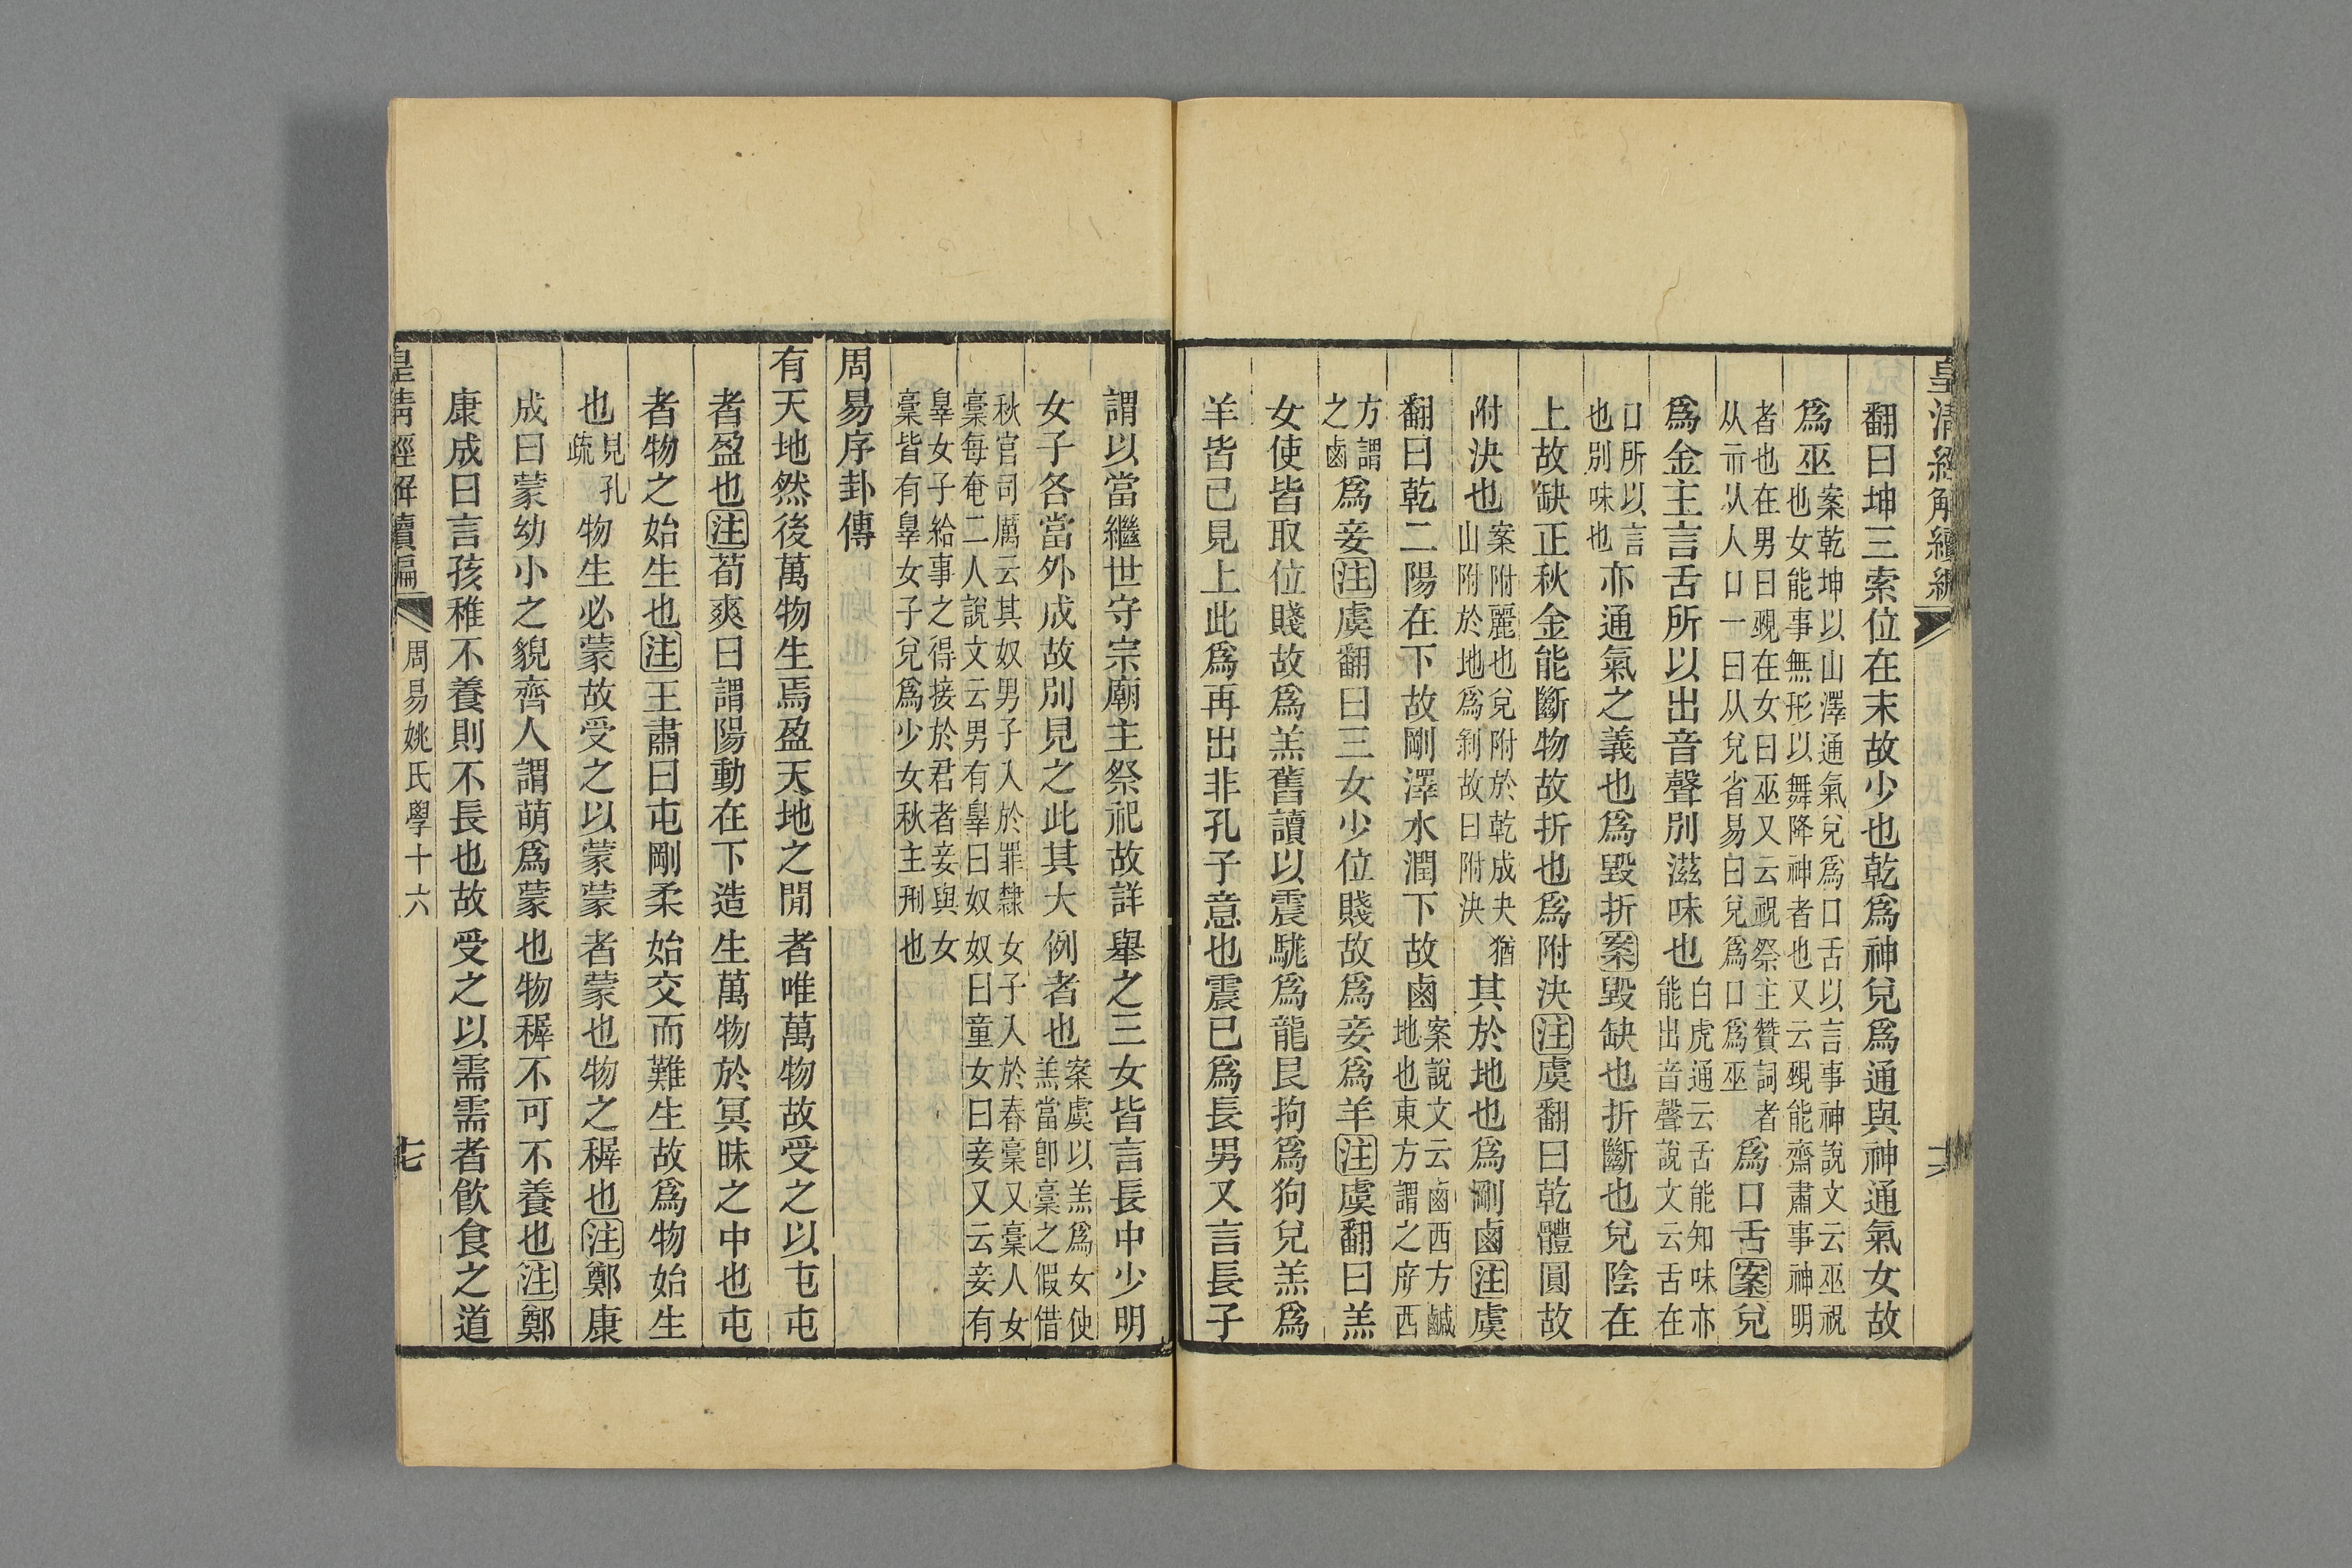 皇清經解續編
翻曰坤三索位在末故少也乾爲神兌爲通與神通氣女故
爲巫案乾坤以山澤通氣兌爲口舌以言事神說文云巫祝也女能事無形以舞降神者也又云覡能齋肅事神明
者也在男曰覡在女曰巫又云祝祭主贊詞者从示从人口一曰从兌省易曰兌爲口爲巫爲口舌案兌
爲金主言舌所以出音聲別滋味也白虎通云舌能知味亦能出音聲說文云舌在
口所以言也別味也亦通氣之義也爲毀折案毀缺也折斷也兌陰在
上故缺正秋金能斷物故折也爲附決注虞翻曰乾體圓故
附決也案附麗也兌附於乾成夬猶山附於地爲剝故曰附決其於地也爲剛鹵注虞
翻曰乾二陽在下故剛澤水潤下故鹵案說文云鹵西方鹹地也東方謂之㡿西
方謂之鹵爲妾注虞翻曰三女少位賤故爲妾爲羊注虞翻曰羔
女使皆取位賤故爲羔舊讀以震駹爲龍艮拘爲狗兌羔爲
羊皆已見上此爲再出非孔子意也震已爲長男又言長子
謂以當繼世守宗廟主祭祀故詳舉之三女皆言長中少明
女子各當外成故別見之此其大例者也案虞以羔爲女使羔當卽稾之假借
秋官司厲云其奴男子入於罪隸女子入於舂稾又稾人女稾每奄二人說文云男有辠曰奴奴曰童女曰妾又云妾有
辠女子給事之得接於君者妾與女稾皆有辠女子兌爲少女秋主刑也
周易序卦傳
有天地然後萬物生焉盈天地之閒者唯萬物故受之以屯屯
者盈也注荀爽曰謂陽動在下造生萬物於冥昧之中也屯
者物之始生也注王肅曰屯剛柔始交而難生故爲物始生
也見孔疏物生必蒙故受之以蒙蒙者蒙也物之穉也注鄭康
成曰蒙幼小之貌齊人謂萌爲蒙也物穉不可不養也注鄭
康成曰言孩稚不養則不長也故受之以需需者飮食之道
皇清經解續編
周易姚氏學十六
七